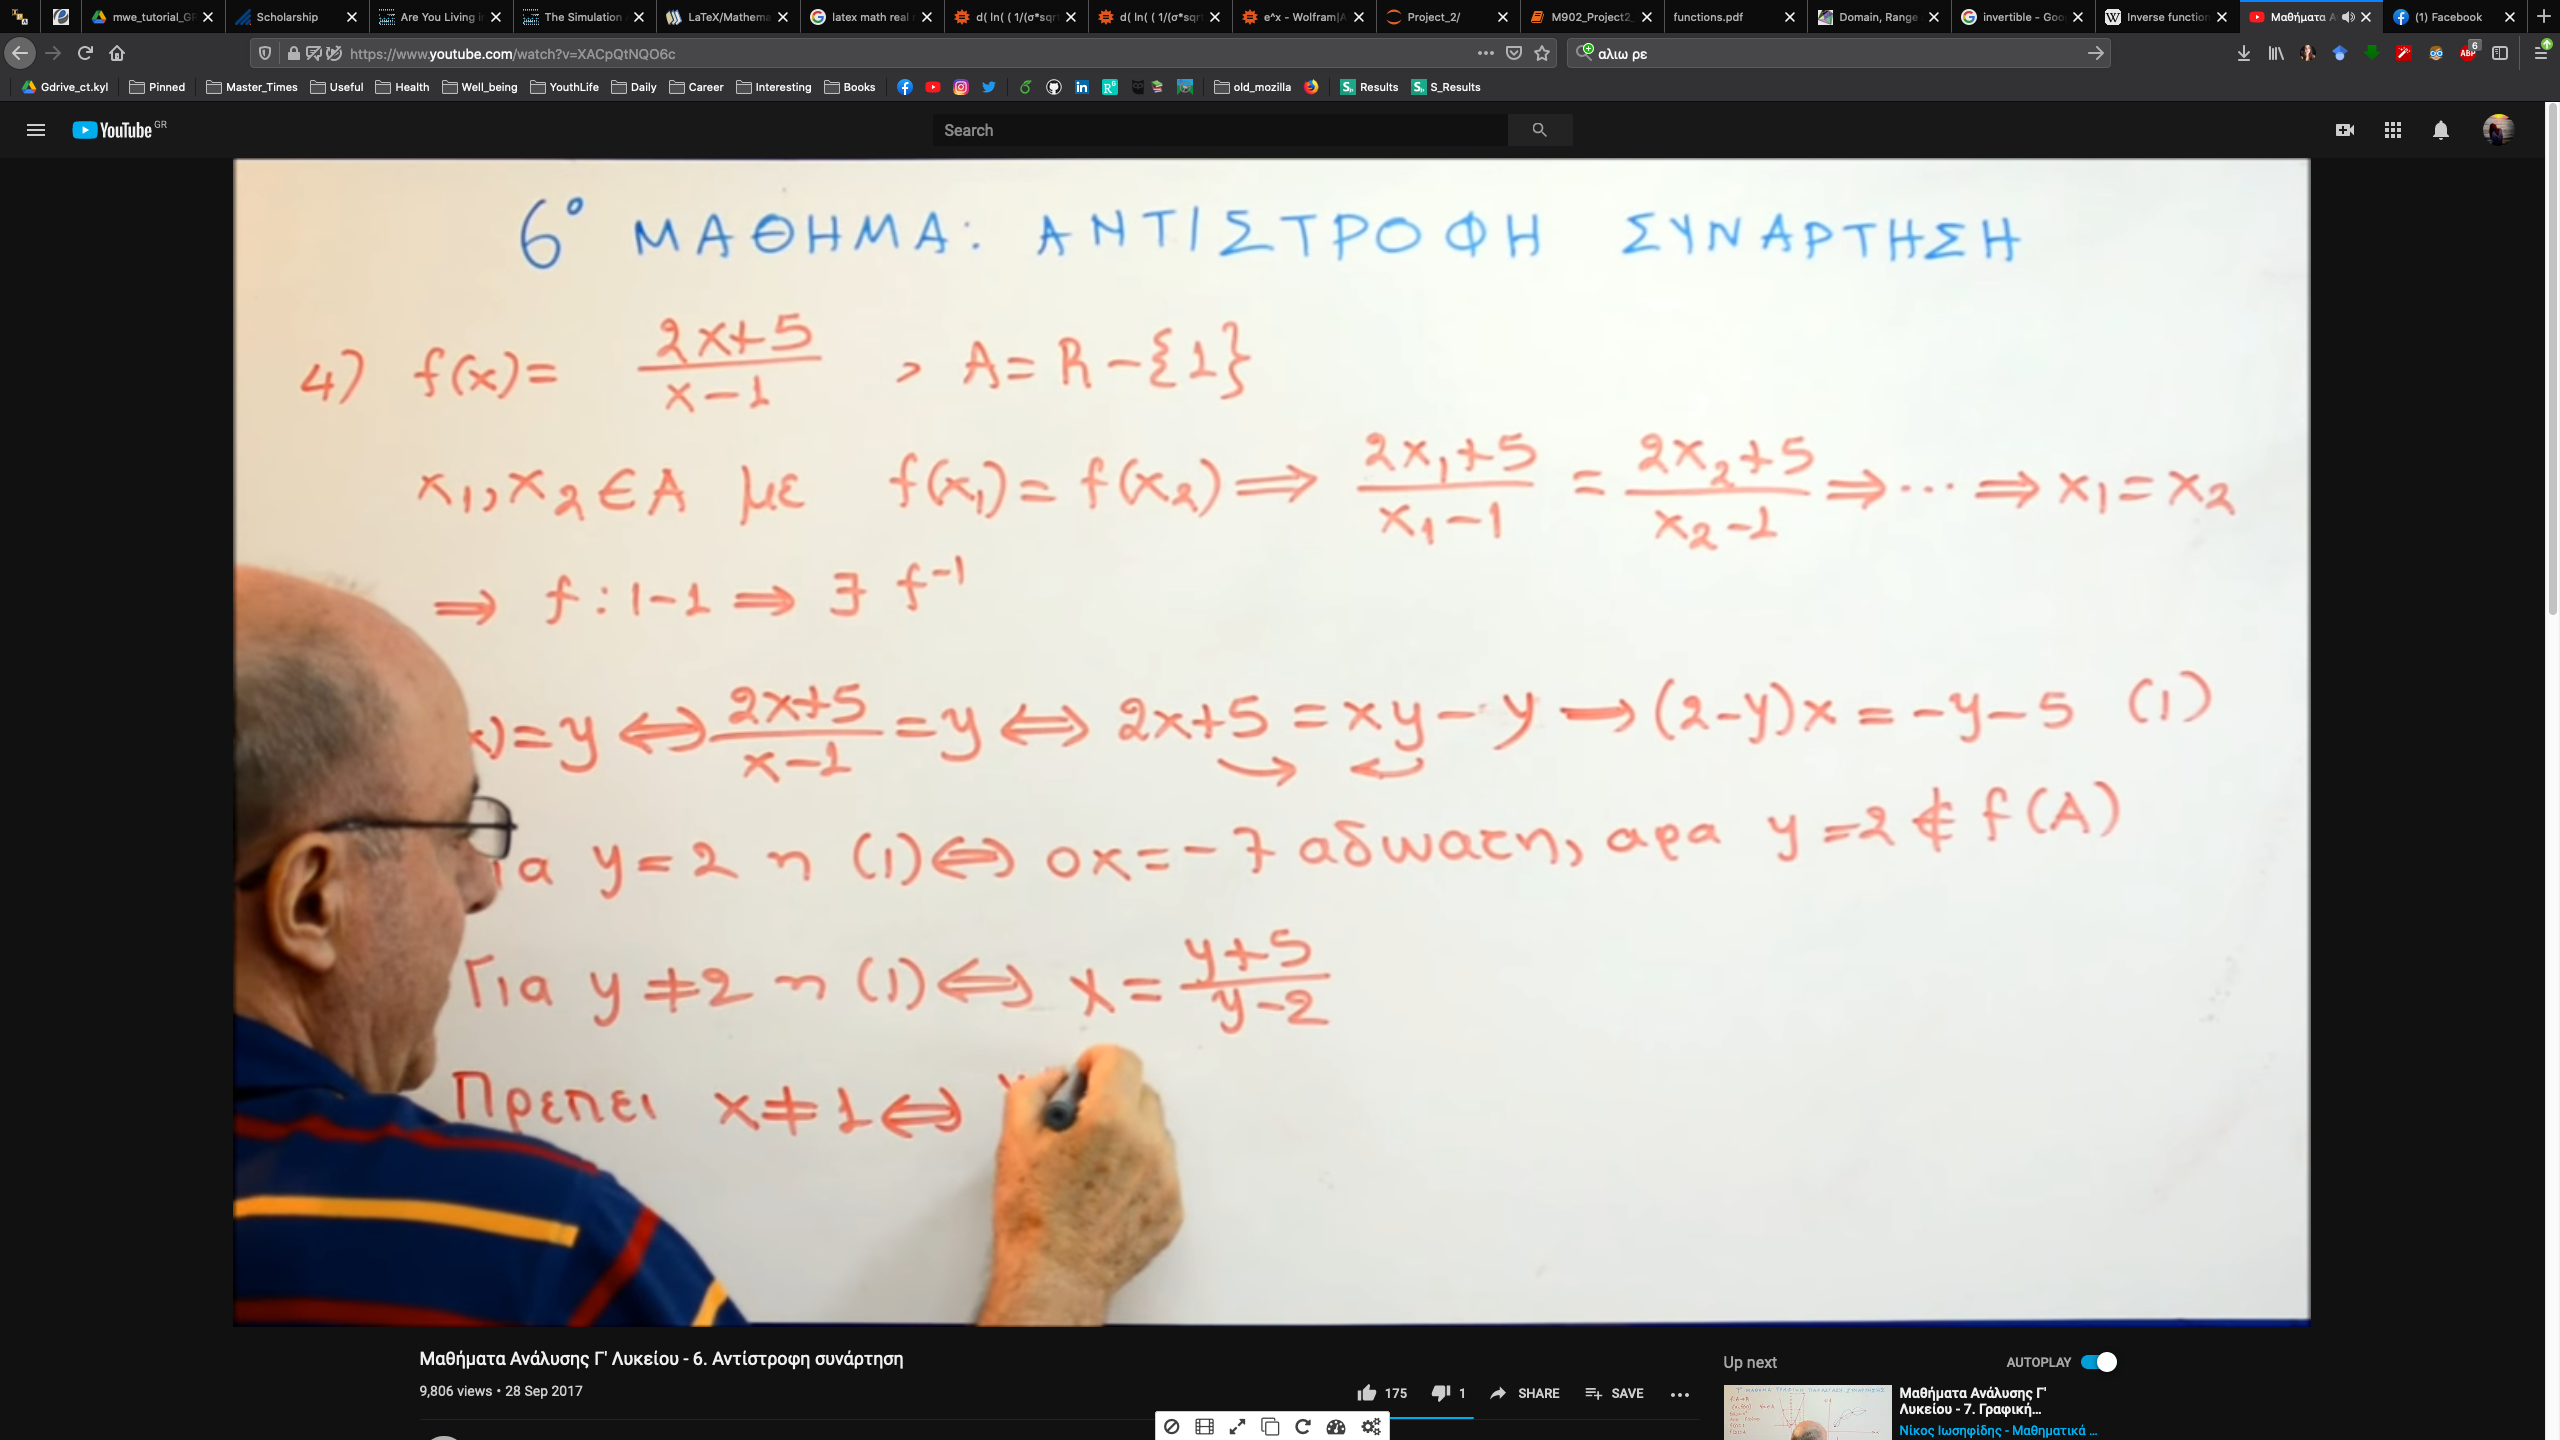 mwe_tutorial_GR
Scholarship
Are You Living in
The Simulation
LaTeX/Mathema
latex math real
d( ln( ( 1/(σ*sqrt
d( ln( ( 1/(σ*sqrt
e^x - Wolfram|A
Project_2/
M902_Project2_
functions.pdf
Domain, Range
invertible - Goo
Inverse function
Μαθήματα Α
(1) Facebook
https://www.youtube.com/watch?v=XACpQtNQO6c
αλιω ρε
6
Gdrive_ct.kyl Pinned Master_Times Useful Health Well_being YouthLife Daily Career Interesting Books old_mozilla Results S_Results
YouTube GR
Search
6° ΜΑΘΗΜΑ: ΑΝΤΙΣΤΡΟΦΗ ΣΥΝΑΡΤΗΣΗ
4) f(x)= 2x+5/x-1 , A=R-{1}
x1,x2∈A με f(x1)=f(x2)⇒ 2x1+5/x1-1 = 2x2+5/x2-1 ⇒ ... ⇒ x1=x2
⇒ f:1-1 ⇒ ∃ f^-1
x)=y ⇔ 2x+5/x-1 =y ⇔ 2x+5=xy-y → (2-y)x=-y-5 (1)
ια y=2 η (1)⇔ 0x=-7 αδυνατη, αρα y=2∉f(A)
Για y≠2 η (1)⇔ x= y+5/y-2
Πρεπει x≠1⇔
Μαθήματα Ανάλυσης Γ' Λυκείου - 6. Αντίστροφη συνάρτηση
9,806 views • 28 Sep 2017
175 1 SHARE SAVE
Up next AUTOPLAY
Μαθήματα Ανάλυσης Γ'
Λυκείου - 7. Γραφική...
Νίκος Ιωσηφίδης - Μαθηματικά ...